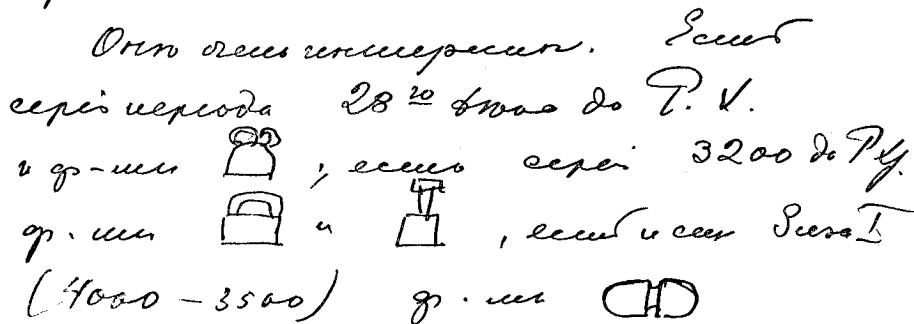 Они очень интересны. Есть
серія періода 28го вѣка до Р. Х.
и ф-мы , есть серія 3200 до Р.Х.
ф-мы и , есть и Сиза I
(4000 – 3500) ф-мы